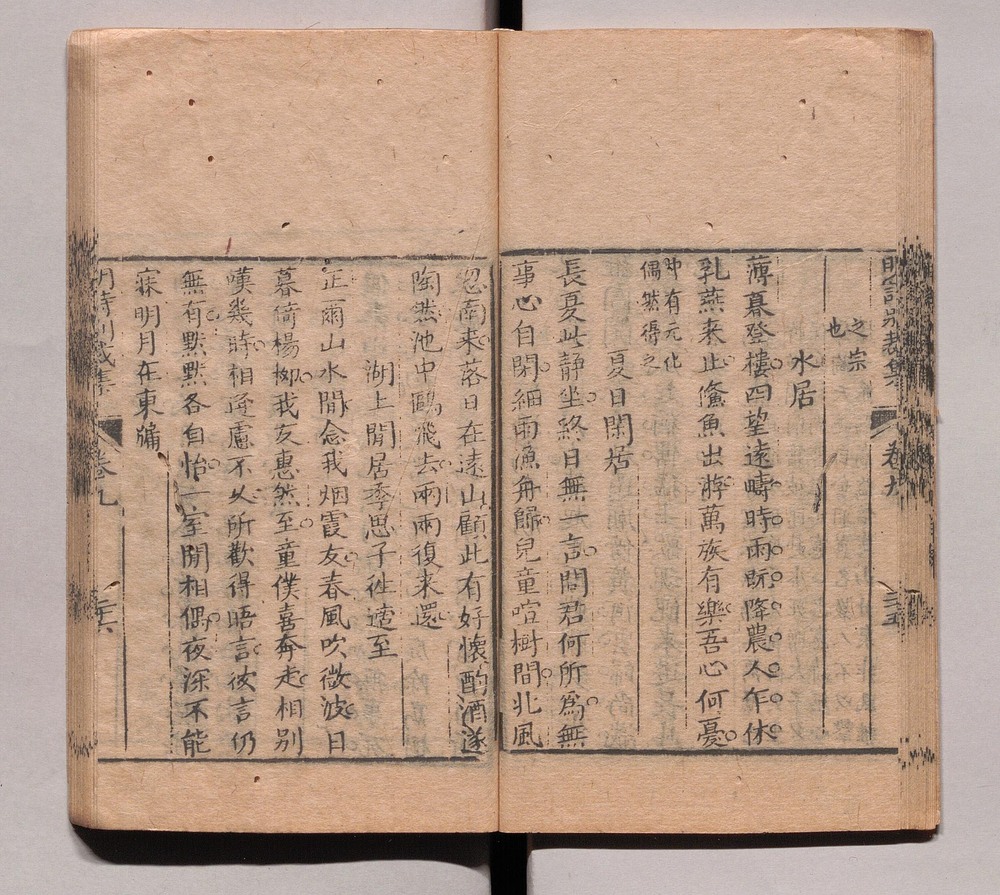 明詩別裁集 卷九 三五
之宗
也
水居
薄暮登樓四望遠疇時雨既降農人乍休
乳燕来止鯈魚出游萬族有樂吾心何憂
中有元化
偶然得之
夏日閑居
長夏此静坐終日無一言問君何所為無
事心自閑細雨漁舟歸兒童喧樹間北風
忽南来落日在遠山顧此有好懷酌酒遂
陶然池中鷗飛去兩兩復来還
湖上閒居季思子往適至
正爾山水閒念我烟霞友春風吹微波日
暮倚楊柳我友惠然至童僕喜奔走相別
嘆幾時相逢慮不久所歡得晤言彼言仍
無有黙黙各自怡一室閒相偶夜深不能
寐明月在東牖
明詩別裁集 卷九 三六